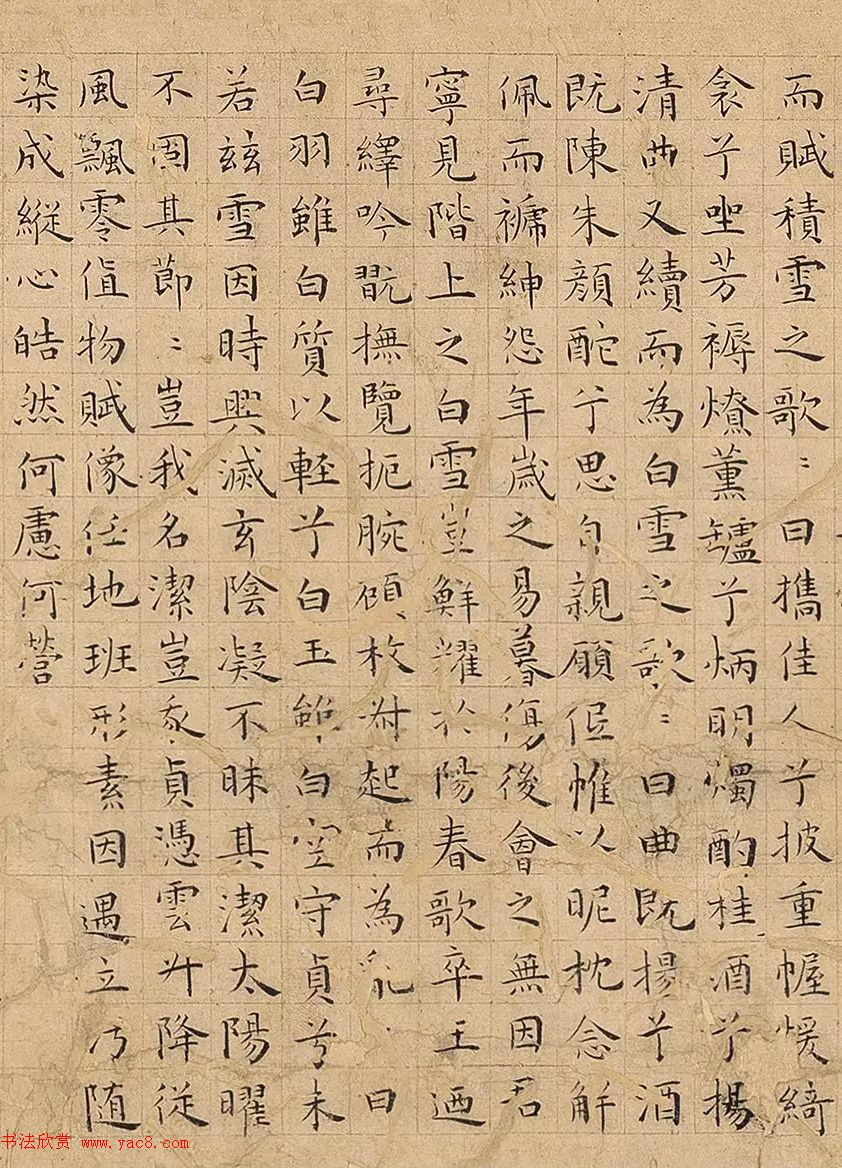 而賦積雪之歌〻曰攜佳人兮披重幄煖綺
衾兮坐芳褥燎薰罏兮炳明燭酌桂酒兮揚
清曲又續而為白雪之歌〻曰曲既揚兮酒
既陳朱顏酡兮思自親願低帷以昵枕念解
佩而褫紳怨年歲之易暮傷後會之無因君
寧見階上之白雪豈鮮耀於陽春歌卒王迺
尋繹吟翫撫覽扼腕顧枚叔起而為亂曰
白羽雖白質以輕兮白玉雖白空守貞兮未
若茲雪因時興滅玄陰凝不昧其潔太陽曜
不固其節〻豈我名潔豈我貞憑雲升降從
風飄零值物賦像任地班形素因遇立汙隨
染成縱心皓然何慮何營
书法欣赏 www.yac8.com